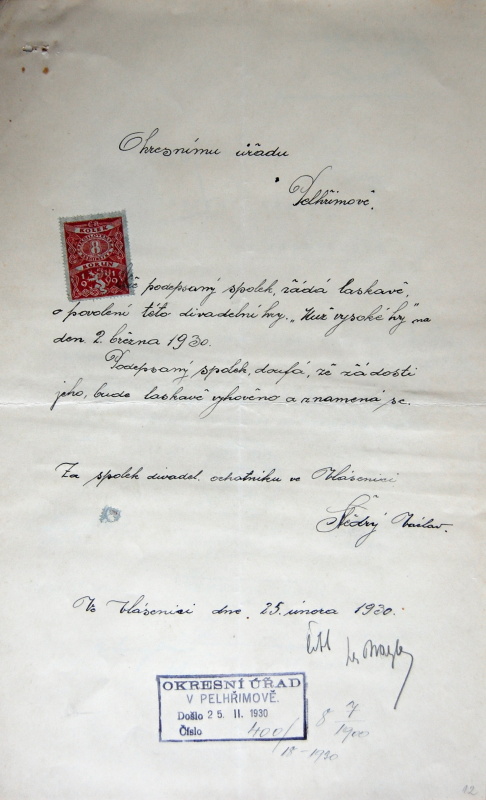 Okresnímu úřadu
Pelhřimově.
KOLEK
3
KORUN
podepsaný spolek, žádá laskavě,
o povolení této divadelní hry. „Kur vysoké hry" na
den 2. března 1930.
Podepsaný spolek, doufá, že žádosti
jeho, bude laskavě vyhověno a znamená se.
Za spolek divadel. ochotníku ve Vlásenici
Štědrý Václav.
Ve Vlásenici dne, 25. února 1930.
OKRESNÍ ÚŘAD
V PELHŘIMOVĚ.
Došlo 25. II. 1930
Číslo 400/
18-1930
8 7
1900
12